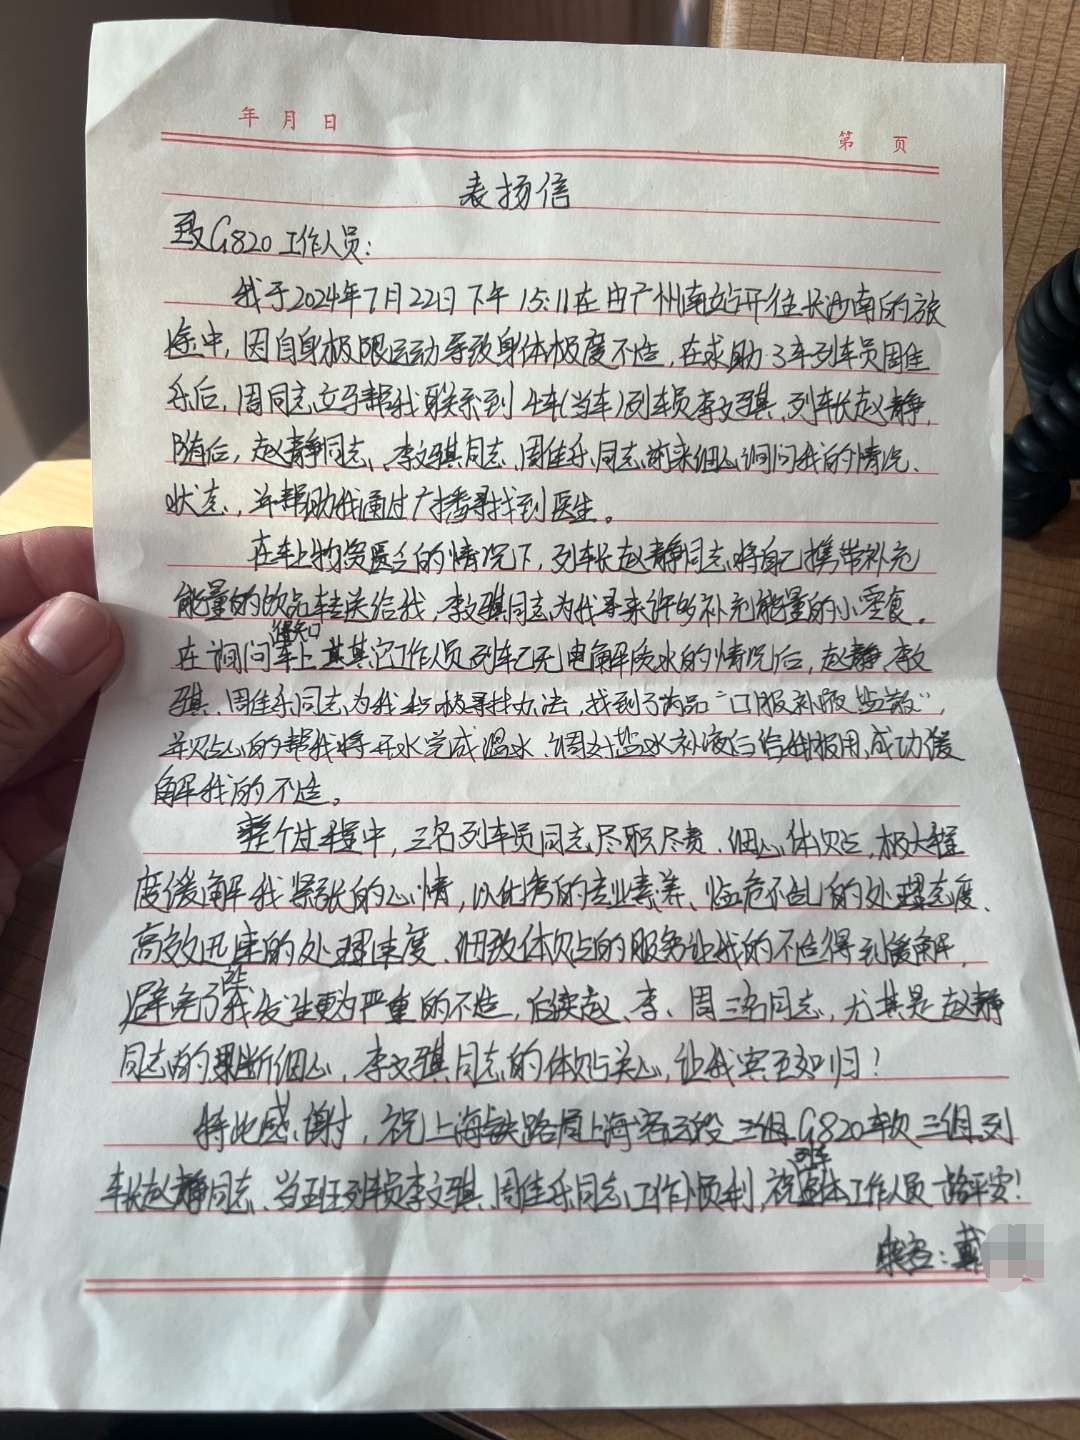 年 月 日
第 页
表扬信
致G820工作人员:
我于2024年7月22日下午15:11在由广州南站开往长沙南的旅
途中,因自身极限运动导致身体极度不适,在求助3车列车员周佳
乐后,周同志立马帮我联系到4车(当车)列车员李文骐、列车长赵静,
随后,赵静同志、李文骐同志、周佳乐同志前来细心询问我的情况、
状态,并帮助我通过广播寻找到医生。
在车上物资匮乏的情况下,列车长赵静同志将自己携带补充
能量的饮品转送给我,李文骐同志为我寻来许多补充能量的小零食。
在询问得知车上其它工作人员列车已无电解质水的情况后,赵静、李文
骐、周佳乐同志为我积极寻找办法,找到了药品“口服补液盐散”,
并贴心的帮我将开水完成温水、调对盐水补液后给我服用,成功缓
解我的不适。
整个过程中,三名列车员同志尽职尽责、细心体贴,极大程
度缓解我紧张的心情,以优秀的专业素养、临危不乱的处理态度、
高效迅速的处理速度、细致体贴的服务让我的不适得到缓解,
避免了我发生更为严重的不适,后续赵、李、周三名同志,尤其是赵静
同志的果断细心,李文骐同志的体贴关心,让我宾至如归!
特此感谢,祝上海铁路局上海客运段三组G820车次三组列
车长赵静同志、当班列车员李文骐、周佳乐同志工作顺利,祝列车全体工作人员一路平安!
乘客:戴